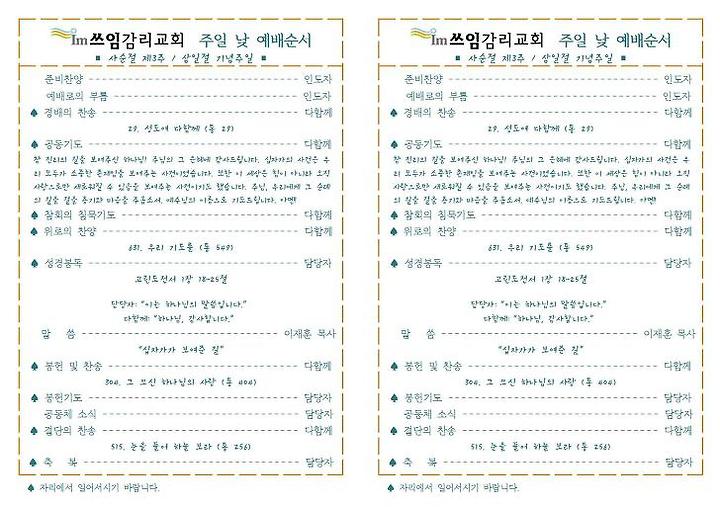 Im쓰임감리교회 주일 낮 예배순서
■ 사순절 제3주 / 삼일절 기념주일 ■
준비찬양 인도자
예배로의 부름 인도자
♠ 경배의 찬송 다함께
29. 성도여 다함께 (통 29)
♠ 공동기도 다함께
참 진리의 길을 보여주신 하나님! 주님의 그 은혜에 감사드립니다. 십자가의 사건은 우
리 모두가 소중한 존재임을 보여주는 사건이었습니다. 또한 이 세상은 힘이 아니라 오직
사랑으로만 새로워질 수 있음을 보여주는 사건이기도 했습니다. 주님, 우리에게 그 순례
의 길을 걸을 용기와 마음을 주옵소서. 예수님의 이름으로 기도드립니다. 아멘!
♠ 참회의 침묵기도 다함께
♠ 위로의 찬양 다함께
631. 우리 기도를 (통 549)
♠ 성경봉독 담당자
고린도전서 1장 18-25절
담당자: "이는 하나님의 말씀입니다."
다함께: "하나님, 감사합니다."
말 씀 이재훈 목사
"십자가가 보여준 길"
♠ 봉헌 및 찬송 다함께
304. 그 크신 하나님의 사랑 (통 404)
♠ 봉헌기도 담당자
공동체 소식 담당자
♠ 결단의 찬송 다함께
515. 눈을 들어 하늘 보라 (통 256)
♠ 축 복 담당자
♠ 자리에서 일어서시기 바랍니다.
Im쓰임감리교회 주일 낮 예배순서
■ 사순절 제3주 / 삼일절 기념주일 ■
준비찬양 인도자
예배로의 부름 인도자
♠ 경배의 찬송 다함께
29. 성도여 다함께 (통 29)
♠ 공동기도 다함께
참 진리의 길을 보여주신 하나님! 주님의 그 은혜에 감사드립니다. 십자가의 사건은 우
리 모두가 소중한 존재임을 보여주는 사건이었습니다. 또한 이 세상은 힘이 아니라 오직
사랑으로만 새로워질 수 있음을 보여주는 사건이기도 했습니다. 주님, 우리에게 그 순례
의 길을 걸을 용기와 마음을 주옵소서. 예수님의 이름으로 기도드립니다. 아멘!
♠ 참회의 침묵기도 다함께
♠ 위로의 찬양 다함께
631. 우리 기도를 (통 549)
♠ 성경봉독 담당자
고린도전서 1장 18-25절
담당자: "이는 하나님의 말씀입니다."
다함께: "하나님, 감사합니다."
말 씀 이재훈 목사
"십자가가 보여준 길"
♠ 봉헌 및 찬송 다함께
304. 그 크신 하나님의 사랑 (통 404)
♠ 봉헌기도 담당자
공동체 소식 담당자
♠ 결단의 찬송 다함께
515. 눈을 들어 하늘 보라 (통 256)
♠ 축 복 담당자
♠ 자리에서 일어서시기 바랍니다.